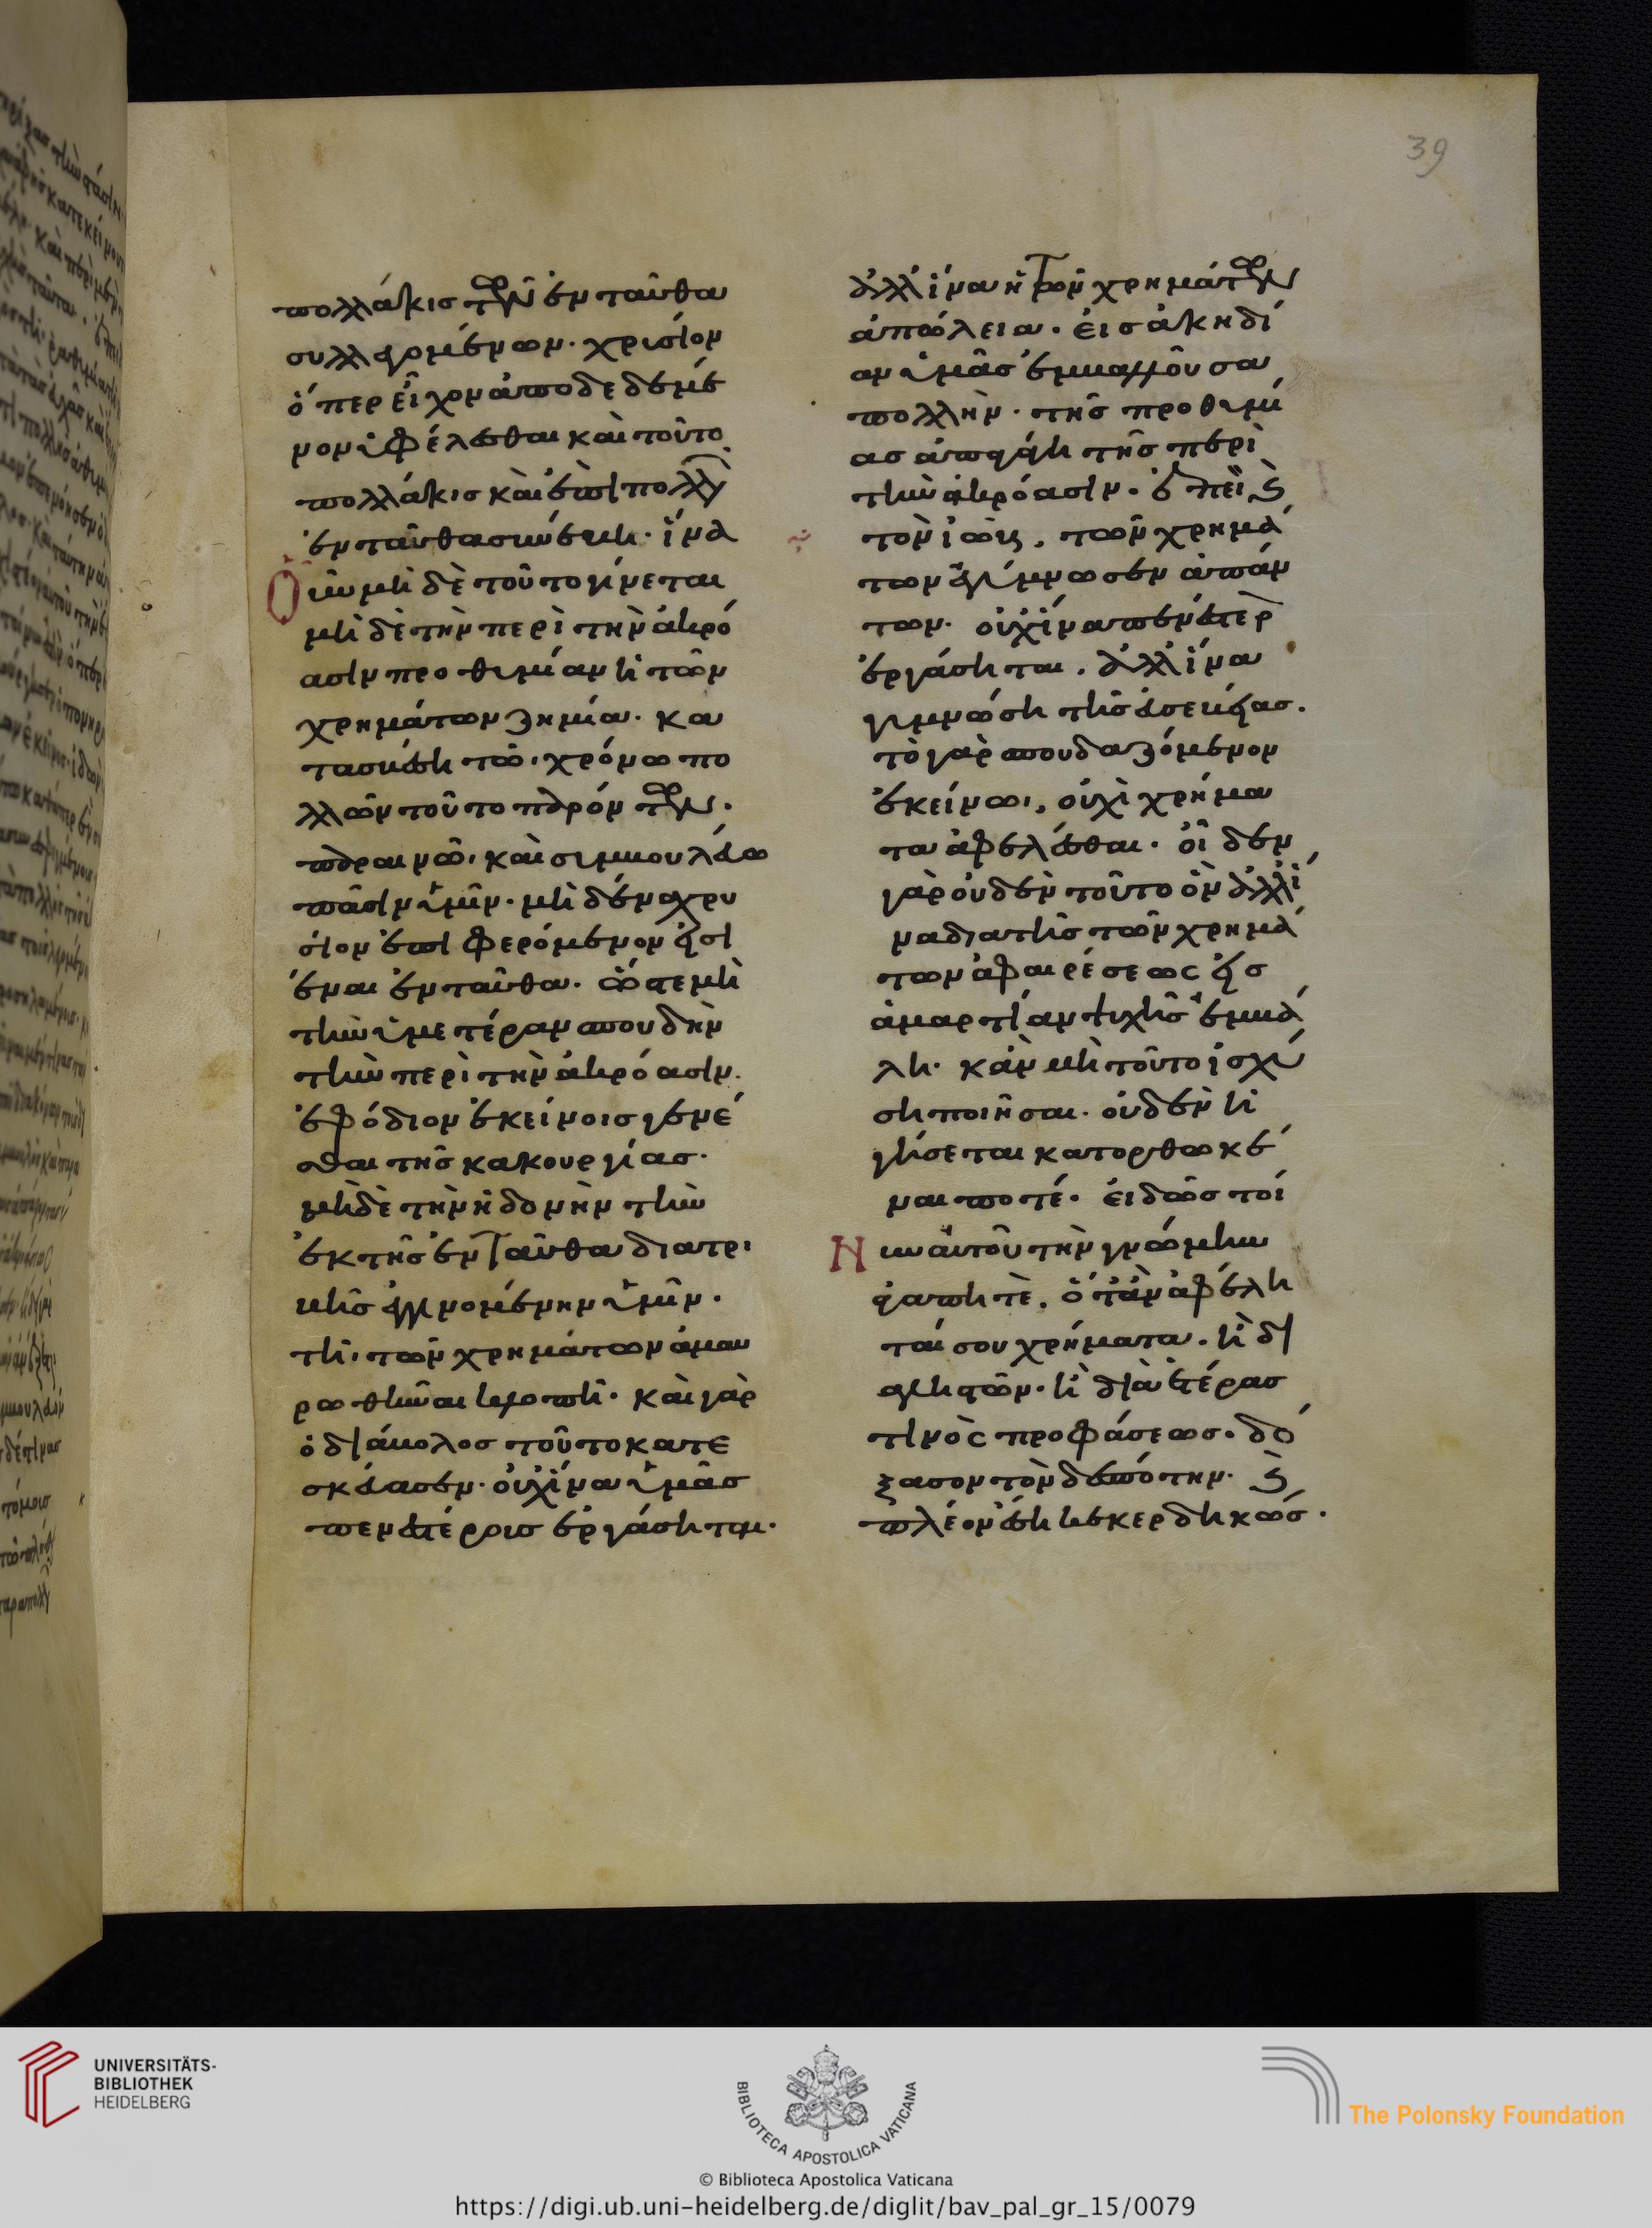 39
πολλάκις τῶν ἐνταῦθα
συλλεγομένων. χρυσίον
ὅπερ εἶχον ἀποδεδεμέ
νον ὑφέλεσθαι καὶ τοῦτο
πολλάκις καὶ ἐπὶ πολλῶν
ἐνταῦθα συνέβη. ἵνα
οὖν μὴ δὲ τοῦτο γίνεται
μὴ δὲ τὴν περὶ τὴν ἀκρό
ασιν προθυμίαν ἡ τῶν
χρημάτων ζημία. κα
τασβέση τῶ χρόνω πο
λλῶν τοῦτο παρόντων.
παραινῶ, καὶ συμβουλεύω
πᾶσιν ὑμῖν. μὴ δένα χρυ
σίον ἐπιφερόμενον εἰσι
έναι ἐνταῦθα. ὥστε μὴ
τὴν ὑμετέραν σπουδὴν
τὴν περὶ τὴν ἀκρόασιν.
ἐφόδιον ἐκείνοις γενέ
σθαι τῆς κακουργίας.
μὴ δὲ τὴν ἡδονὴν τὴν
ἐκ τῆς ἐνταῦθα διατρι
βῆς ἐγγινομένην ὑμῖν.
τῆ τῶν χρημάτων ἀμαυ
ρωθῆναι κλοπῆ. καὶ γὰρ
ὁ διάβολος τοῦτο κατε
σκεύασεν. οὐχ ἵνα ὑμᾶς
πενεστέροις ἐργάσηται.
ἀλλ ἵνα ἡ τῶν χρημάτων
ἀπώλεια. εἰς ἀκηδί
αν ὑμᾶς ἐμβαλλοῦσα
πολλὴν. τῆς προθυμί
ας ἀπαγάγη τῆς περὶ
τὴν ἀκρόασιν. ἐπεὶ καὶ
τὸν ἰὼβ, τῶν χρημά
των ἐγύμνωσεν ἁπάν
των. οὐχ ἵνα πενέστερ
ἐργάσηται. ἀλλ ἵνα
γυμνώση τῆς εὐσεβείας.
τὸ γὰρ σπουδαζόμενον
ἐκείνω, οὐχὶ χρήμα
τα ἀφελέσθαι. οἶδεν
γὰρ οὐδὲν τοῦτο ὂν ἀλλ ἵ
να διὰ τῆς τῶν χρημά
των ἀφαιρέσεως εἰς
ἁμαρτίαν ψυχῆς ἐμβά
λη. κἂν μὴ τοῦτο ἰσχύ
ση ποιῆσαι. οὐδὲν ἡ
γήσεται κατορθωκέ
ναι ποτέ. εἰδὼς τοί
νυν αὐτοῦ τὴν γνώμην
ἀγαπητὲ, ὅταν ἀφέλη
ταί σου χρήματα. ἢ δι
α ληστῶν. ἢ δι ἀ ἑτέρας
τινὸς προφάσεως. δό
ξασον τὸν δεσπότην. καὶ
πλέον ἔση κεκερδηκώς.
UNIVERSITÄTS-
BIBLIOTHEK
HEIDELBERG
BIBLIOTECA APOSTOLICA VATICANA
The Polonsky Foundation
© Biblioteca Apostolica Vaticana
https://digi.ub.uni-heidelberg.de/diglit/bav_pal_gr_15/0079